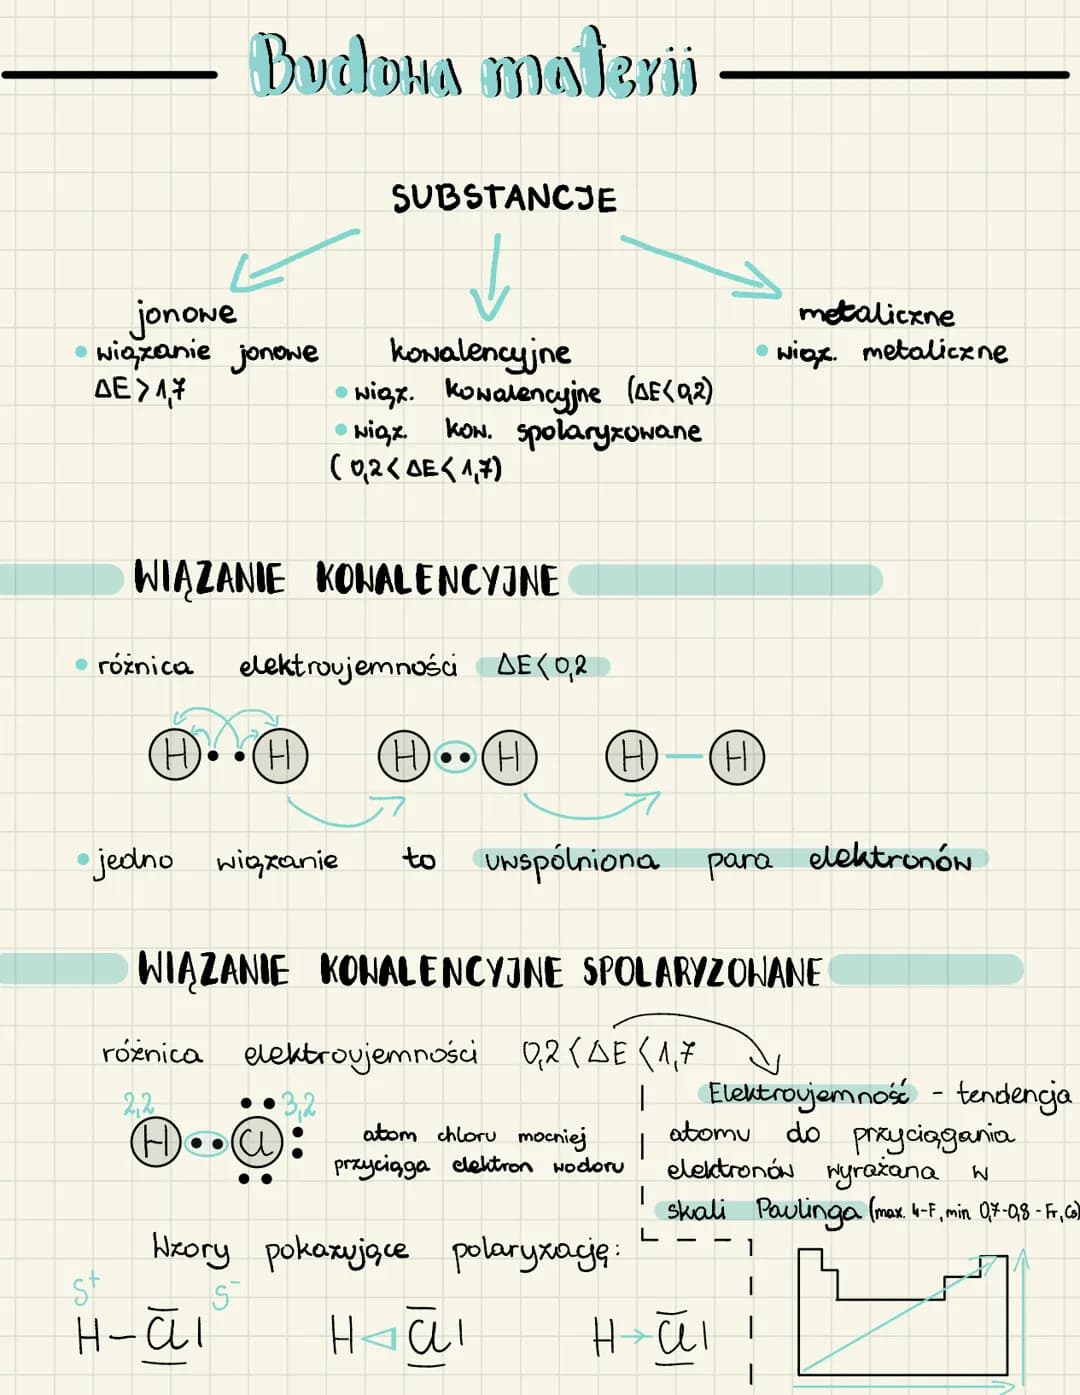 Budowa materii
SUBSTANCJE
jonowe
• wiązanie jonowe
ΔE > 1,7
kowalencyjne
• wiąz. kowalencyjne (ΔE < 0,2)
• wiąz. kow. spolaryzowane
(0,2 < ΔE < 1,7)
metaliczne
• wiąz. metaliczne
WIĄZANIE KOWALENCYJNE
• różnica elektroujemności ΔE < 0,2
H •• H H •• H H — H
• jedno wiązanie to uwspólniona para elektronów
WIĄZANIE KOWALENCYJNE SPOLARYZOWANE
różnica elektroujemności 0,2 < ΔE < 1,7
2,2 3,2
H •• Cl
atom chloru mocniej
przyciąga elektron wodoru
Elektroujemność - tendencja
atomu do przyciągania
elektronów wyrażana w
skali Paulinga (max. 4-F, min 0,7-0,8 - Fr, Cs)
Wzory pokazujące polaryzację:
δ+ δ-
H – Cl H ◁ Cl H → Cl